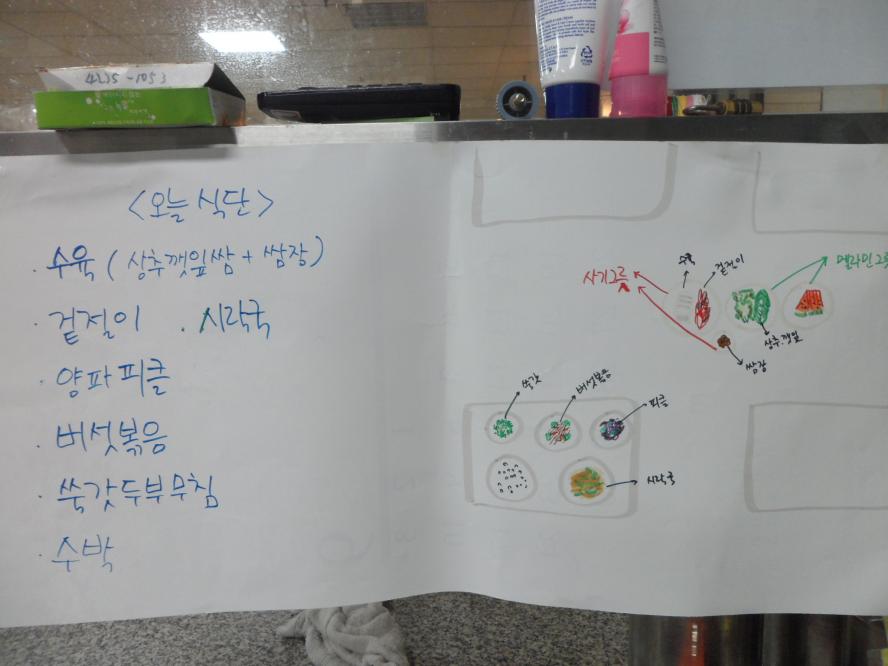 4235-1053
<오늘 식단>
· 수육 (상추깻잎쌈 + 쌈장)
· 겉절이 · 시락국
· 양파피클
· 버섯볶음
· 쑥갓두부무침
· 수박
사기그릇
수육
겉절이
멜라민그릇
상추.깻잎
쌈장
쑥갓
버섯볶음
피클
시락국